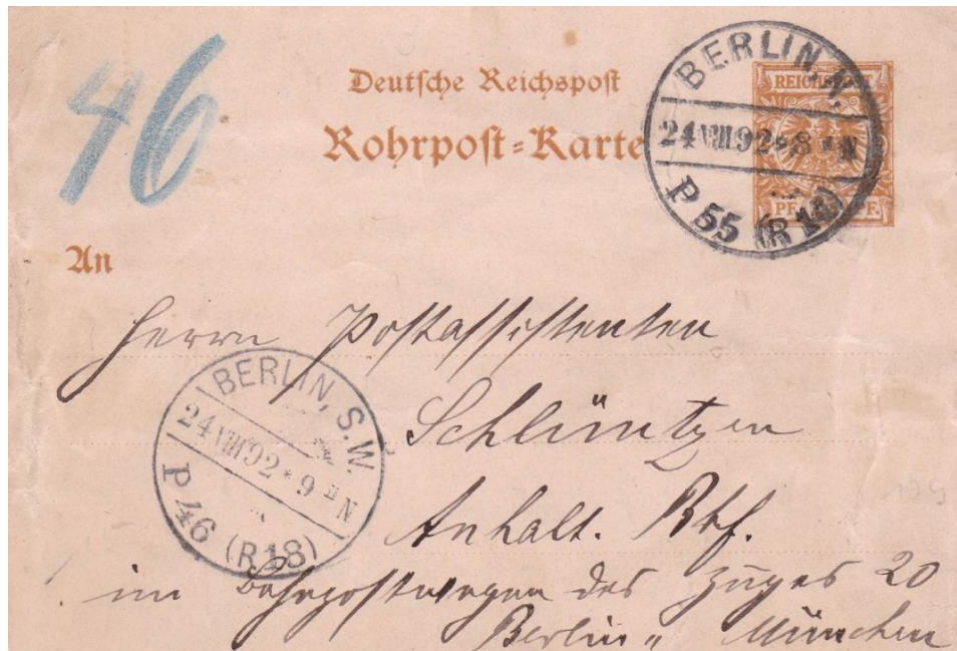 46
Deutsche Reichspost
Rohrpost-Karte
BERLIN, N.
24 VIII 92 * 8
N
P 55 (R 14)
REICHSPOST
PF. PF.
An
Herrn Postassistenten
Schlüntzen
Anhalt. Bhf.
im Bahnpostwagen des Zuges 20
Berlin " München
BERLIN, S.W.
24 VIII 92 * 9 N
P 46 (R 18)